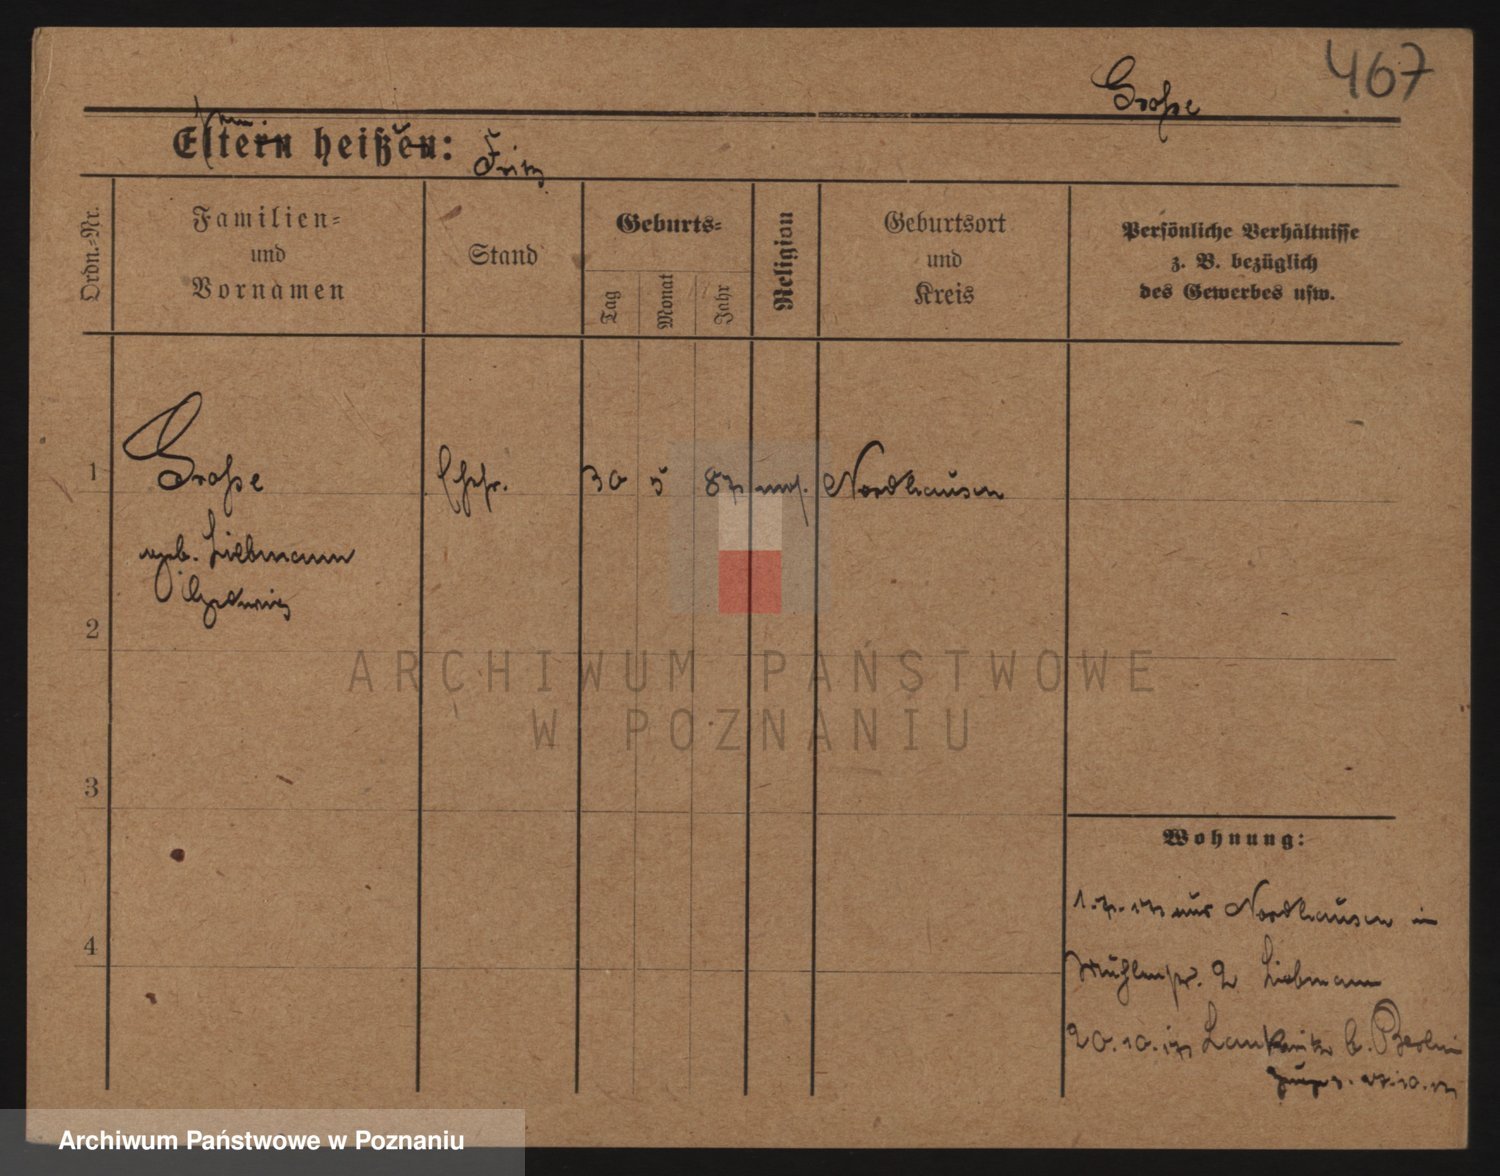 467
Große
Eltern heißen: Fritz
Ordn.-Nr.
Familien-
und
Vornamen
Stand
Geburts-
Tag
Monat
Jahr
Religion
Geburtsort
und
Kreis
Persönliche Verhältnisse
z. B. bezüglich
des Gewerbes usw.
1
Große
Ehefr.
30
5
87
Nordhausen
geb. Liebmann
Hedwig
2
ARCHIWUM PAŃSTWOWE
W POZNANIU
3
Wohnung:
4
1.7.17 aus Nordhausen in
Mühlenstr. 2 Liebmann
20.10.17 Lankwitz b. Berlin
Archiwum Państwowe w Poznaniu